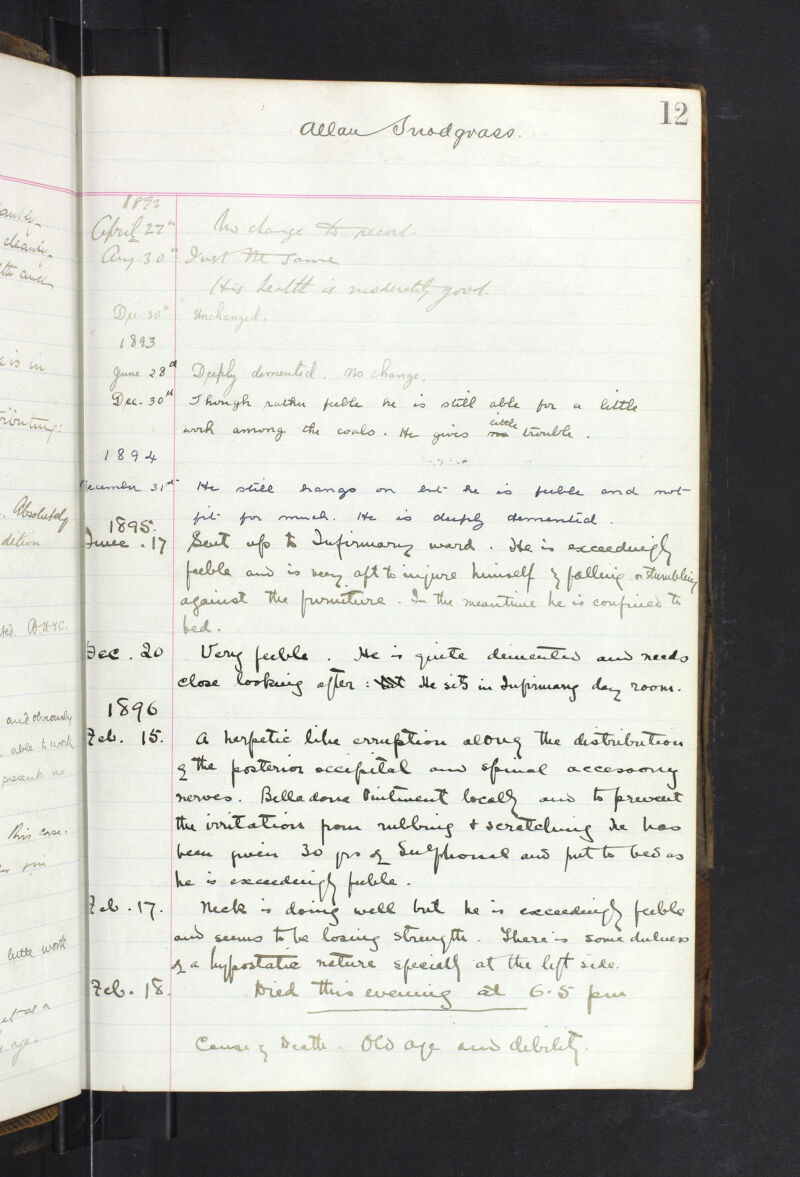 12
Allan Snodgrass.
1892
April 27th No change to record.
Aug. 30th Just the same
His health is moderately good.
Dec. 30th Unchanged.
1893
June 28th Deeply demented. No change.
Dec. 30th Though rather feeble he is still able for a little
work among the coals. He gives no little trouble.
1894
December 31st He still hangs on but he is feeble and not
fit for much. He is deeply demented.
1895.
June. 17 Sent up to Infirmary ward. He is exceedingly
feeble and is very apt to injure himself by falling or stumbling
against the furniture. In the meantime he is confined to
bed.
Dec. 20 Very feeble. He is quite demented and needs
close looking after: He sits in Infirmary day room.
1896
Feb. 15. A herpetic like erruption along the distribution
of the posterior occipital and spinal accessory
nerves. Belladona Ointment locally and to prevent
the irritation from rubbing & scratching he has
been given 30 grs of Sulphonal and put to bed as
he is exceedingly feeble.
Feb. 17. Neck is doing well but he is exceedingly feeble
and seems to be losing strength. There is some dulness
of a hypostatic nature specially at the left side.
Feb. 18. Died this evening at 6.5 pm
Cause of Death. Old age and debility.
cleanly
is in
Absolutely
and obviously
able to work
present no
this case.
little work
age.